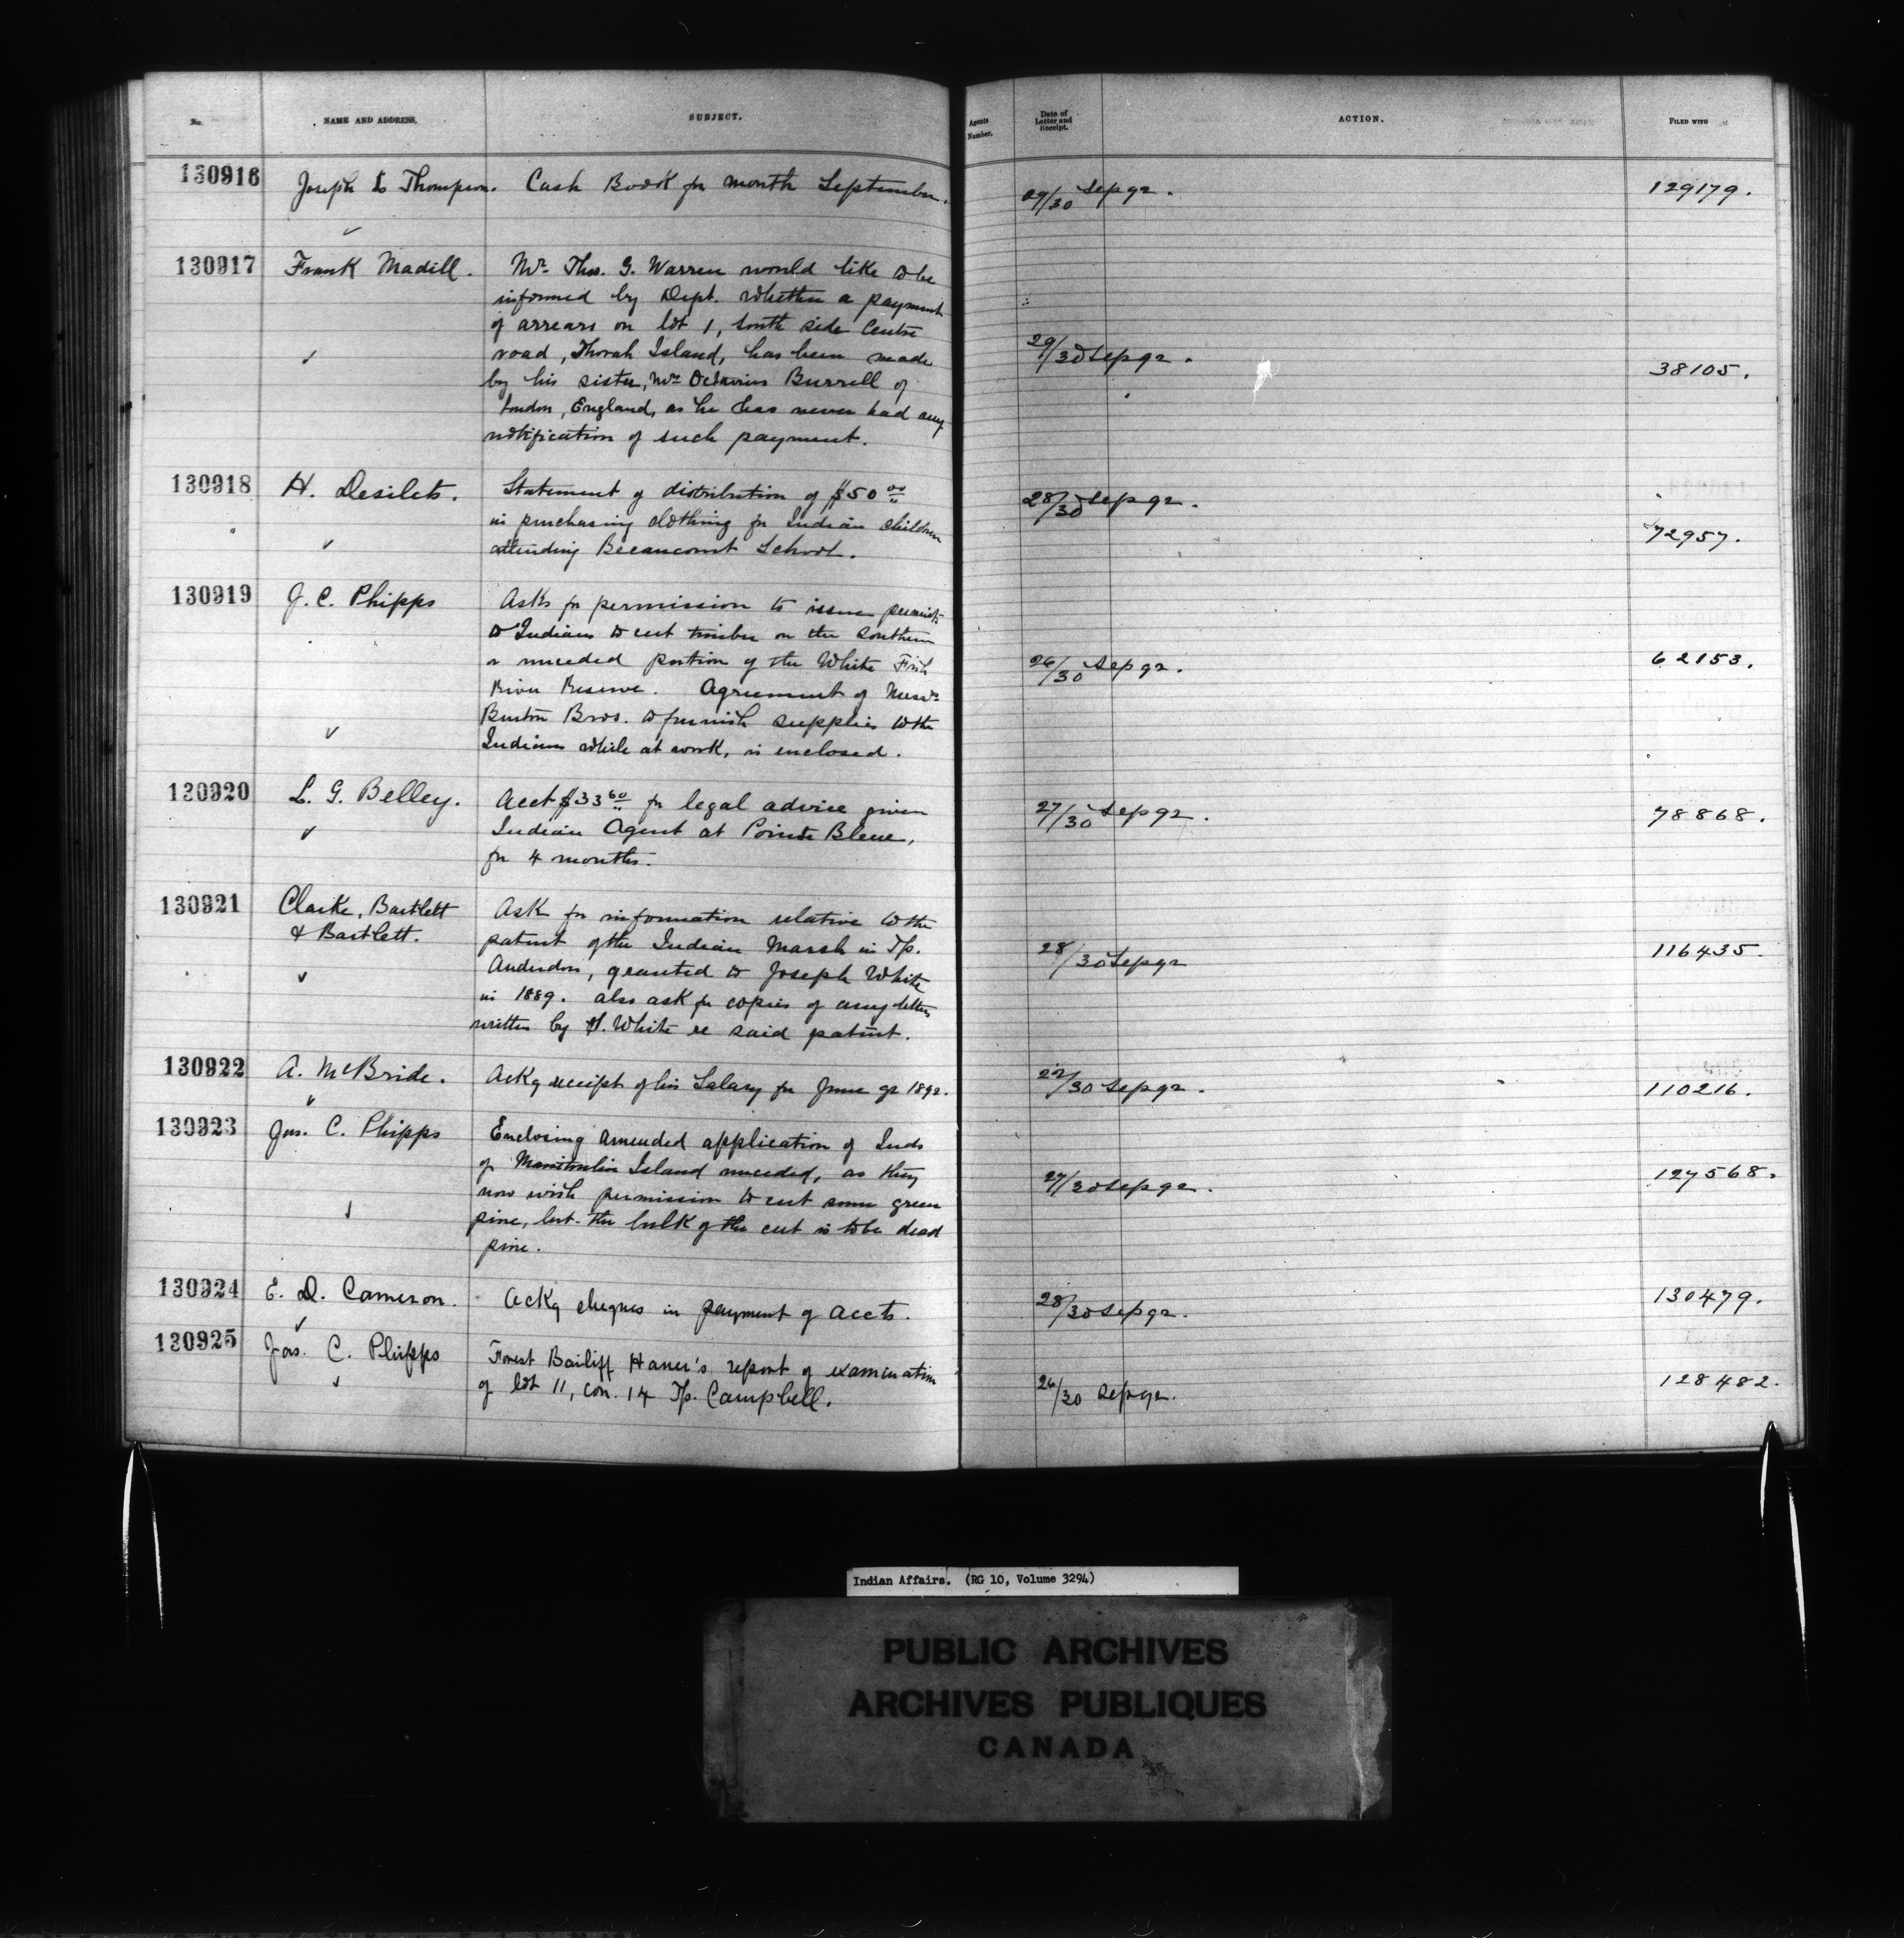 No. NAME AND ADDRESS. SUBJECT. Agents Number. Date of Letter and Receipt. ACTION. FILED WITH
130916 Joseph L Thompson. Cash Book for month September. 29/30 Sep 92. 129179.
130917 Frank Madill. Mr. Thos. G. Warren would like to be
informed by Dept. whether a payment
of arrears on lot 1, South side Centre
road, Thorah Island, has been made 29/30 Sep 92.
by his sister, Mrs Octavius Burrell of 38105.
London, England, as he has never had any
notification of such payment.
130918 H. Desilets. Statement of distribution of $50 00 28/30 Sep 92.
in purchasing clothing for Indian children 72957.
attending Becancourt School.
130919 J. C. Phipps Asks for permission to issue permits
to Indians to cut timber on the Southern
or unceded portion of the White Fish 26/30 Sep 92. 62153.
River Reserve. Agreement of Messrs
Burton Bros. to furnish supplies to the
Indians while at work, is enclosed.
130920 L. G. Belley. Acct $33 60 for legal advice given 27/30 Sep 92. 78868.
Indian Agent at Pointe Bleue,
for 4 months.
130921 Clarke, Bartlett Ask for information relative to the
& Bartlett. patent of the Indian Marsh in Tp. 28/30 Sep 92 116435.
Anderdon, granted to Joseph White
in 1889. also ask for copies of any letters
written by J. White re said patent.
130922 A. McBride. Ackg receipt of his Salary for June qr 1892. 22/30 Sep 92. 110216.
130923 Jas. C. Phipps Enclosing amended application of Inds
of Manitoulin Island unceded, as they 127568.
now wish permission to cut some green 27/30 Sep 92.
pine, but the bulk of the cut is to be dead
pine.
130924 E. D. Cameron. Ackg cheques in payment of accts. 28/30 Sep 92. 130479.
130925 Jas. C. Phipps Forest Bailiff Haner's report of examination
of lot 11, con. 14 Tp. Campbell. 26/30 Sep 92. 128482.
Indian Affairs. (RG 10, Volume 3294)
PUBLIC ARCHIVES
ARCHIVES PUBLIQUES
CANADA